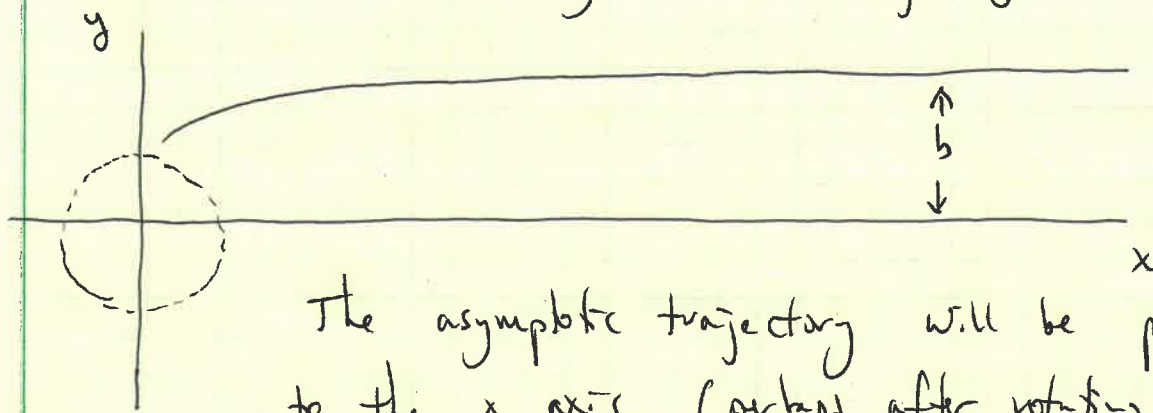 y
b
x
The asymptotic trajectory will be
to the x axis (perhaps after rotating